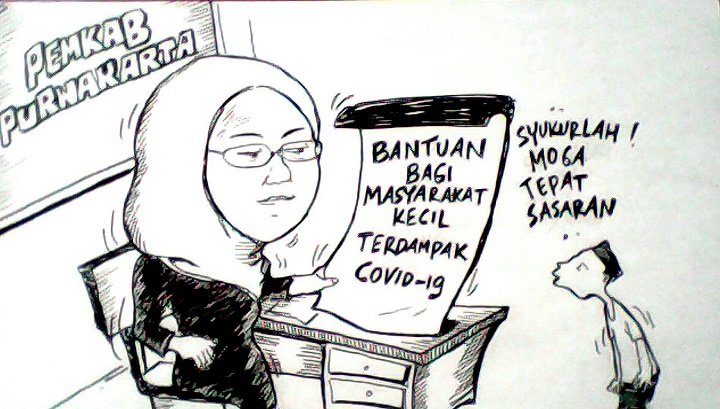 PEMKAB
PURWAKARTA
BANTUAN
BAGI
MASYARAKAT
KECIL
TERDAMPAK
COVID-19
SYUKURLAH !
MOGA
TEPAT
SASARAN